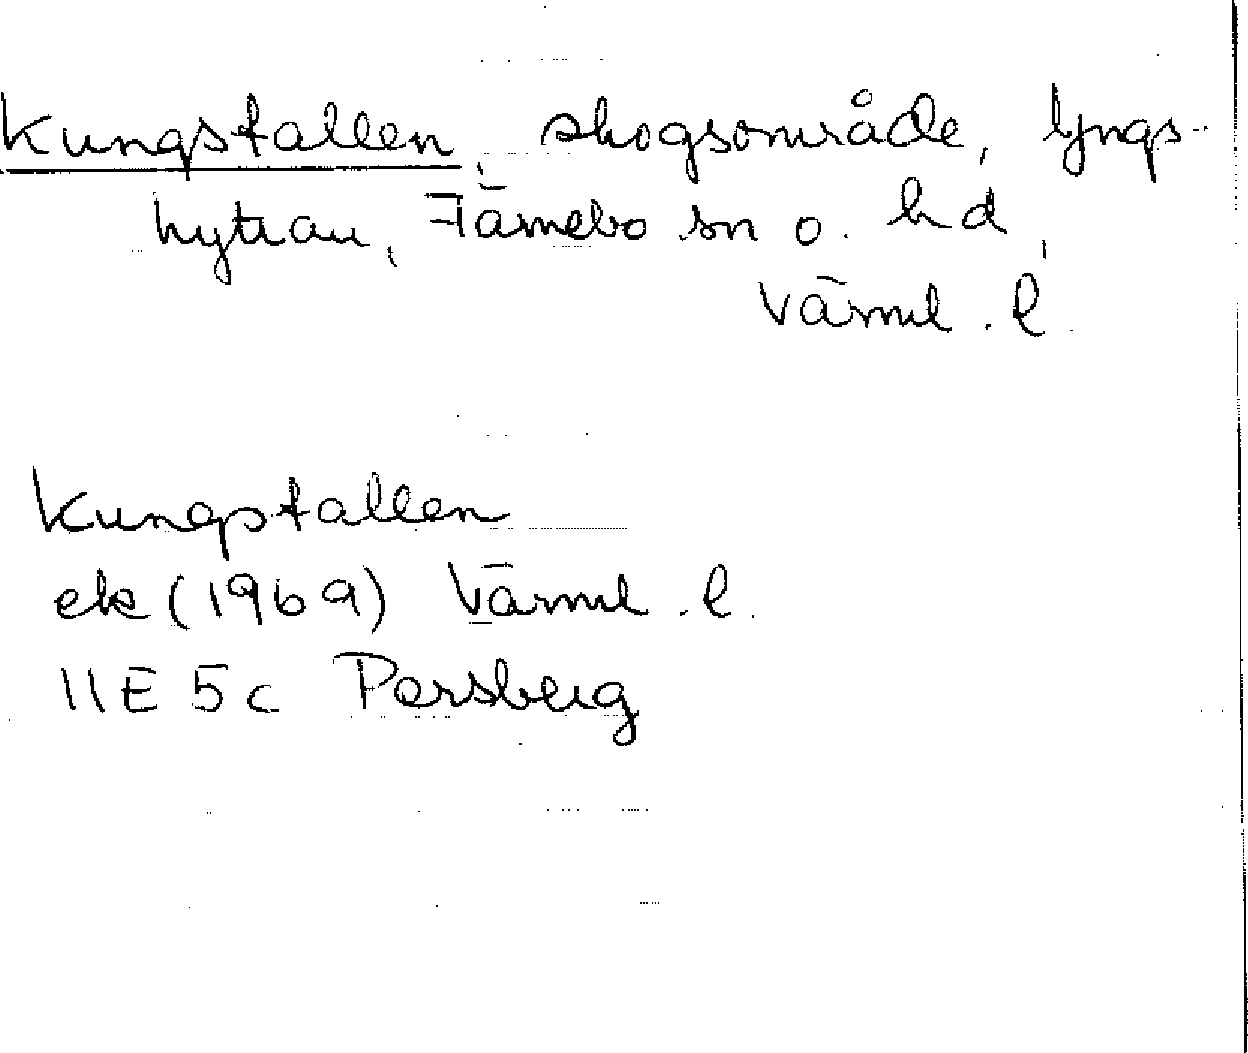 Kungstallen, skogsområde, Yngs-
hyttan, Färnebo sn o. hd,
Värml. l.
Kungstallen
ek (1969) Värml. l.
11E 5c Persberg